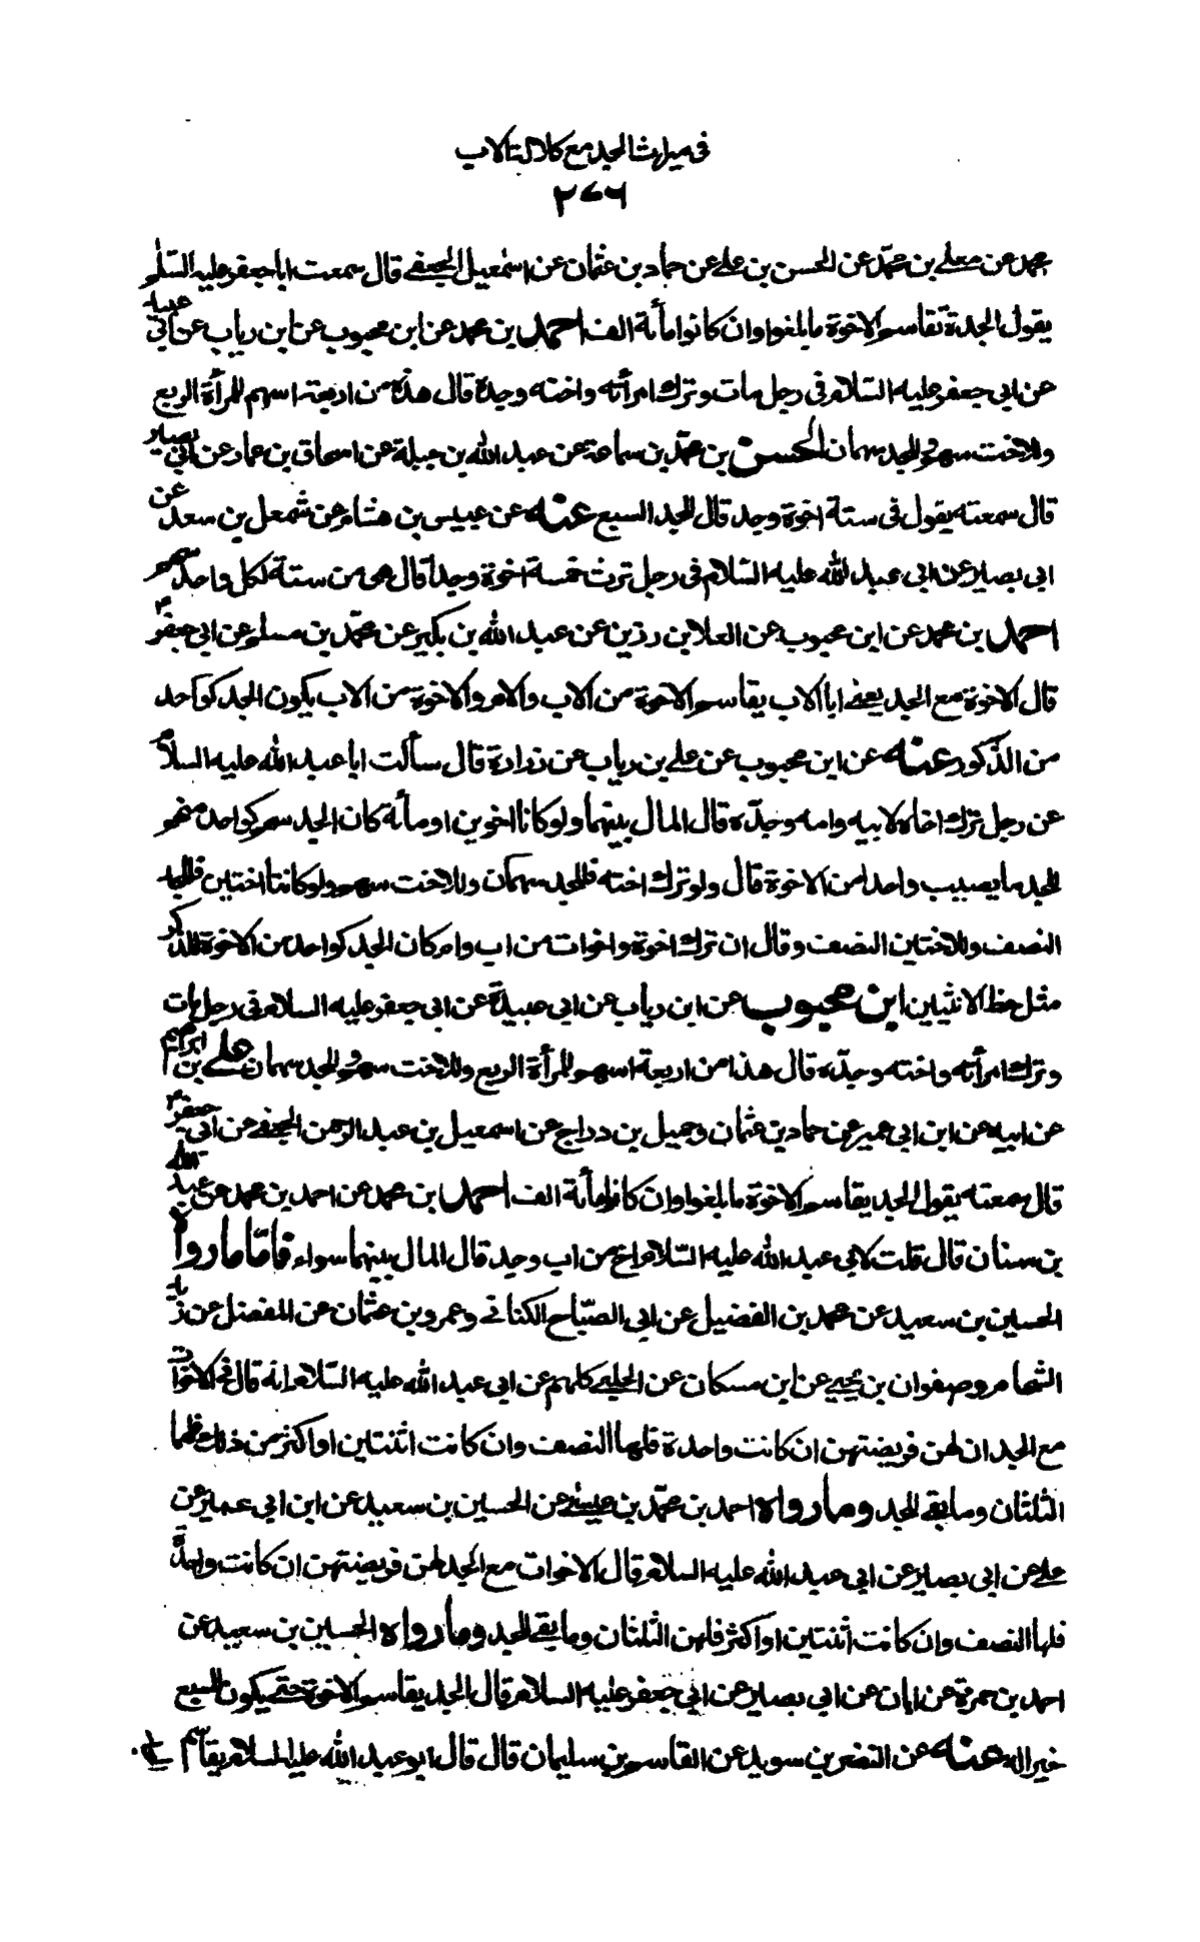 فى ميراث الجد مع كلالة الاب
٢٧٦
محمد عن معلى بن محمّد عن الحسن بن على عن حماد بن عثمان عن اسمٰعيل الجعفى قال سمعت ابا جعفر عليه السّلم
يقول الجد يقاسم الاخوة ما بلغوا وان كانوا مأئة الف احمد بن محمد عن ابن محبوب عن ابن رياب عن ابى عبيدة
عن ابى جعفر عليه السّلام فى رجل مات وترك امرأته واخته وجده قال هذه من اربعة اسهم للمرأة الربع
وللاخت سهم وللجد سهمان الحسن بن محمّد بن سماعة عن عبد الله بن جبلة عن اسحاق بن عمار عن ابى بصير
قال سمعته يقول فى ستة اخوة وجد قال للجد السبع عنه عن عبيس بن هشام عن مشمعل بن سعد عن
ابى بصير عن ابى عبد الله عليه السّلام فى رجل ترك خمسة اخوة وجداً قال هى من ستة لكل واحد سهم
احمد بن محمد عن ابن محبوب عن العلا بن رزين عن عبد الله بن بكير عن محمّد بن مسلم عن ابى جعفر ع
قال الاخوة مع الجد يعنى ابا الاب يقاسم الاخوة من الاب والام والاخوة من الاب يكون الجد كواحد
من الذّكور عنه عن ابن محبوب عن على بن رياب عن زرارة قال سألت ابا عبد الله عليه السلام
عن رجل ترك اخاه لابيه وامه وجدّه قال المال بينهما ولو كانا اخوين او مأئة كان الجد معهم كواحد منهم
للجد ما يصيب واحدا من الاخوة قال ولو ترك اخته فللجد سهمان وللاخت سهم ولو كانتا اختين فللجد
النصف وللاختين النصف وقال ان ترك اخوة واخوات من اب وام كان الجد كواحد من الاخوة للذكر
مثل حظ الانثيين ابن محبوب عن ابن رياب عن ابى عبيدة عن ابى جعفر عليه السلام فى رجل مات
وترك امرأته واخته وجدّه قال هذا من اربعة اسهم للمرأة الربع وللاخت سهم وللجد سهمان على بن ابراهيم
عن ابيه عن ابن ابى عمير عن حماد بن عثمان وجميل بن دراج عن اسمعيل بن عبد الرحمن الجعفى عن ابى جعفر ع
قال سمعته يقول الجد يقاسم الاخوة ما بلغوا وان كانوا مأئة الف احمد بن محمد عن احمد بن محمد عن عبد الله
بن سنان قال قلت لابى عبد الله عليه السّلام اخ من اب وجد قال المال بينهما سواء فامّا ما رواه
الحسين بن سعيد عن محمد بن الفضيل عن ابى الصبّاح الكنانى وعمرو بن عثمان عن المفضل عن زيد
الشحام وصفوان بن يحيى عن ابن مسكان عن الحلبى كلهم عن ابى عبد الله عليه السّلام انه قال فى الاخوات
مع الجد ان لهن فريضتهن ان كانت واحدة فلها النصف وان كانت اثنتين او اكثر من ذلك فلهما
الثلثان وما بقى للجد وما رواه احمد بن محمّد بن عيسى عن الحسين بن سعيد عن ابن ابى عمير عن
على عن ابى بصير عن ابى عبد الله عليه السلام قال الاخوات مع الجد لهن فريضتهن ان كانت واحدة
فلها النصف وان كانت اثنتين او اكثر فلهن الثلثان وما بقى للجد وما رواه الحسين بن سعيد عن
احمد بن حمزة عن ابان عن ابى بصير عن ابى جعفر عليه السلام قال الجد يقاسم الاخوة حتى يكون السبع
خيرا له عنه عن النضر بن سويد عن القاسم بن سليمان قال قال ابو عبد الله عليه السلام يقاسم